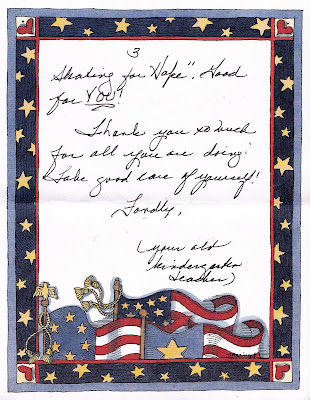 3
Skating for Hope". Good
for YOU!
Thank you so much
for all you are doing!
Take good care of yourself!
Fondly,
(your old
kindergarten
teacher)